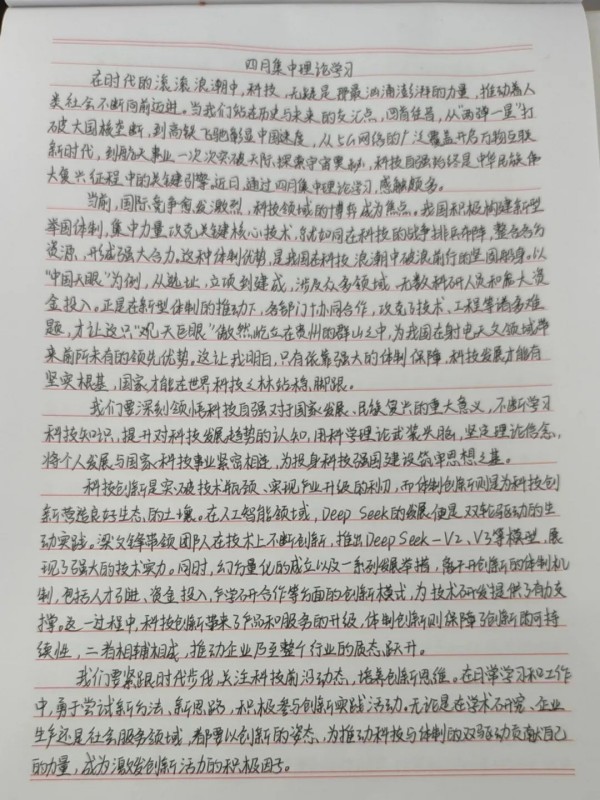 四月集中理论学习
在时代的滚滚浪潮中,科技,无疑是那最汹涌澎湃的力量,推动着人
类社会不断向前迈进。当我们站在历史与未来的交汇点,回首往昔,从“两弹一星”打
破大国核垄断,到高铁飞驰彰显中国速度,从5G网络的广泛覆盖开启万物互联
新时代,到航天事业一次次突破天际、探索宇宙奥秘,科技自强始终是中华民族伟
大复兴征程中的关键引擎。近日,通过四月集中理论学习,感触颇多。
当前,国际竞争愈发激烈,科技领域的博弈成为焦点。我国积极构建新型
举国体制,集中力量攻克关键核心技术,就如同在科技的战争排兵布阵,整合各方
资源,形成强大合力。这种体制优势,是我国在科技浪潮中破浪前行的坚固船身。以
“中国天眼”为例,从选址、立项到建成,涉及众多领域,无数科研人员和庞大资
金投入。正是在新型体制的推动下,各部门协同合作,攻克了技术、工程等诸多难
题,才让这只“观天巨眼”傲然屹立在贵州的群山之中,为我国在射电天文领域带
来前所未有的领先优势。这让我明白,只有依靠强大的体制保障,科技发展才能有
坚实根基,国家才能在世界科技之林站稳脚跟。
我们要深刻领悟科技自强对于国家发展、民族复兴的重大意义,不断学习
科技知识,提升对科技发展趋势的认知,用科学理论武装头脑,坚定理论信念,
将个人发展与国家科技事业紧密相连,为投身科技强国建设筑牢思想之基。
科技创新是突破技术瓶颈、实现产业升级的利刃,而体制创新则是为科技创
新营造良好生态的土壤。在人工智能领域,Deep Seek的发展便是双轮驱动的生
动实践。梁文锋带领团队在技术上不断创新,推出Deep Seek-V2、V3等模型,展
现了强大的技术实力。同时,幻方量化的成立以及一系列发展举措,离不开创新的体制机
制,包括人才引进、资金投入、产学研合作等方面的创新模式,为技术研发提供了有力支
撑。这一过程中,科技创新带来了产品和服务的升级,体制创新则保障了创新的可持
续性,二者相辅相成,推动企业乃至整个行业的质态跃升。
我们要紧跟时代步伐,关注科技前沿动态,培养创新思维。在日常学习和工作
中,勇于尝试新方法、新思路,积极参与创新实践活动。无论是在学术研究、企业
生产还是社会服务领域,都要以创新的姿态,为推动科技与体制的双驱动贡献自己
的力量,成为激发创新活力的积极因子。